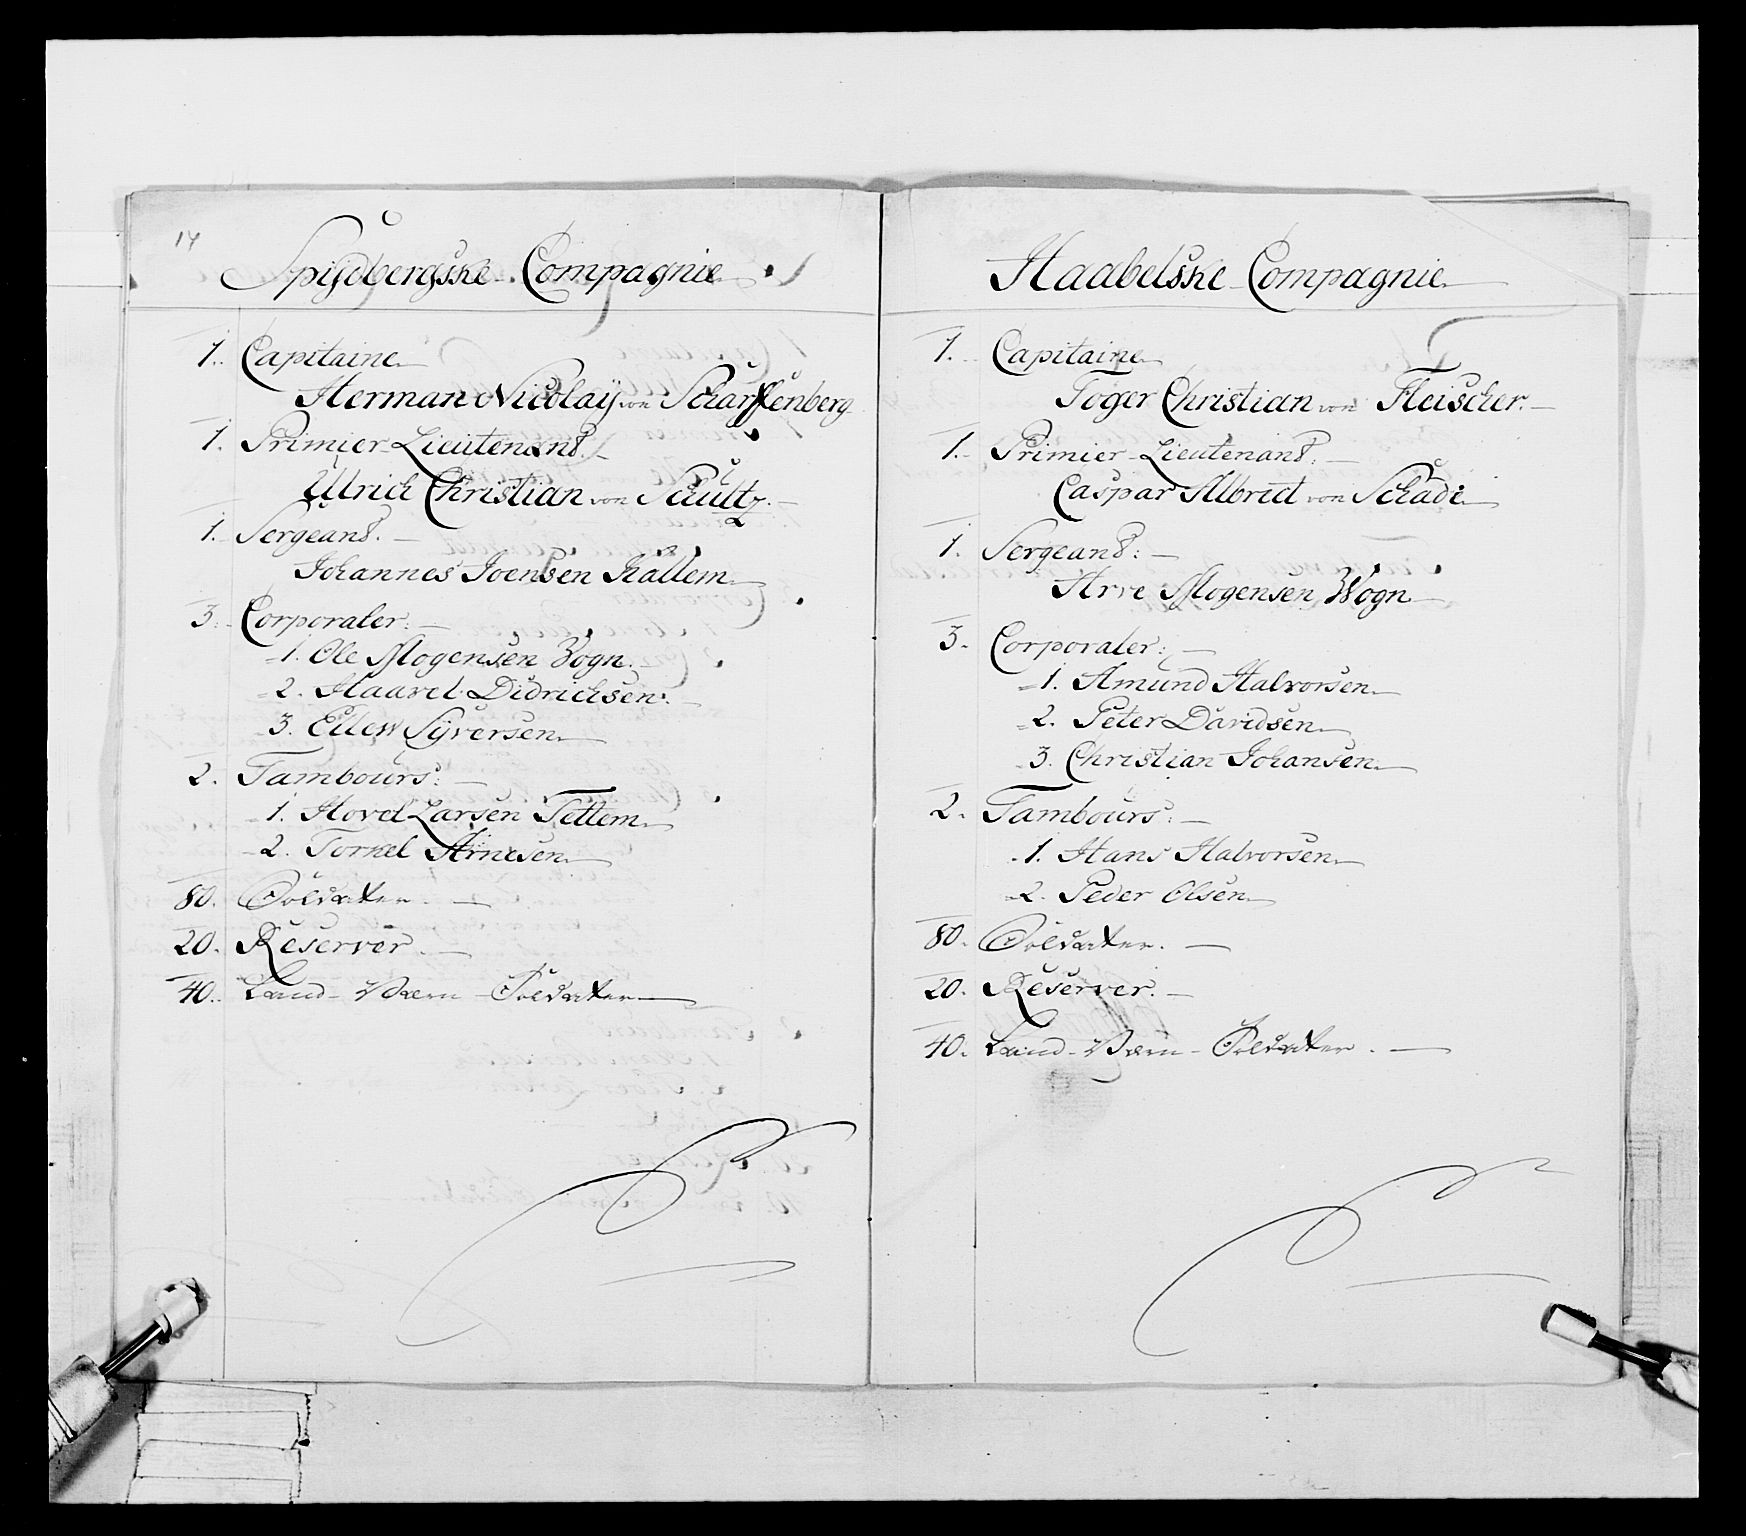 14
Spijdbergske Compagnie
1. Capitaine
Herman Nicolaÿ von Scharffenberg
1. Primier-Lieutenant.
Ulrich Christian von Schultz.
1. Sergeant.
Johannes Joensen Kallem
3. Corporaler:
1. Ole Mogensen Wogn.
2. Haavel Didrichsen.
3. Ellew Syversen
2. Tambours:
1. Hovel Larsen Tellem
2. Torkel Arnesen
80. Soldater.
20. Reserver.
40. Land-Værn-Soldater
Haabelske Compagnie
1. Capitaine
Toger Christian von Fleischer.
1. Primier-Lieutenant:
Caspar Albrict von Schade
1. Sergeant:
Arve Mogensen Wogn
3. Corporaler:
1. Amund Halvorsen
2. Peter Davidsen
3. Christian Johansen
2. Tambours:
1. Hans Halvorsen
2. Peder Olsen
80. Soldater.
20. Reserver.
40. Land-Værn-Soldater.